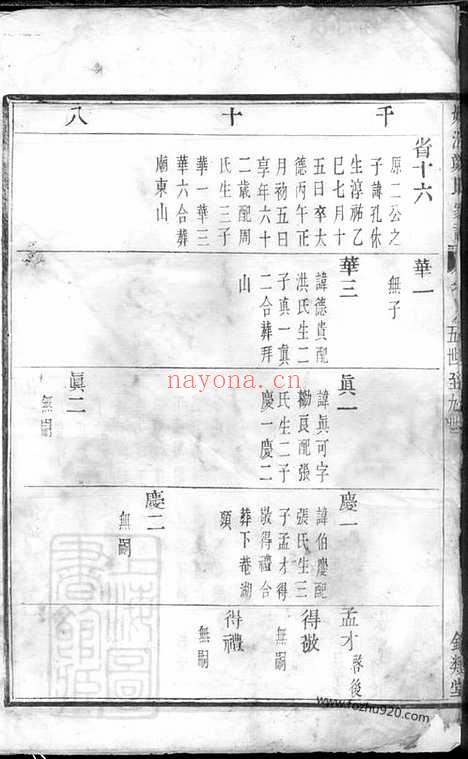 千十八
省十六
原二公之
子諱孔休
生淳祐乙
巳七月十
五日卒大
德丙午正
月初五日
享年六十
二歲配周
氏生三子
華一華三
華六合葬
廟東山
華一
無子
華三
諱德貴配
洪氏生二
子真一真
二合葬拜
山
眞一
諱眞可字
勸良配張
氏生二子
慶一慶二
眞二
無嗣
慶一
諱伯慶配
張氏生三
子孟才得
敬得禮合
葬下菴湖
頭
慶二
無嗣
孟才
啓後
得敬
無嗣
得禮
無嗣
五世至九世
nayona.cn
www.fozhu920.com